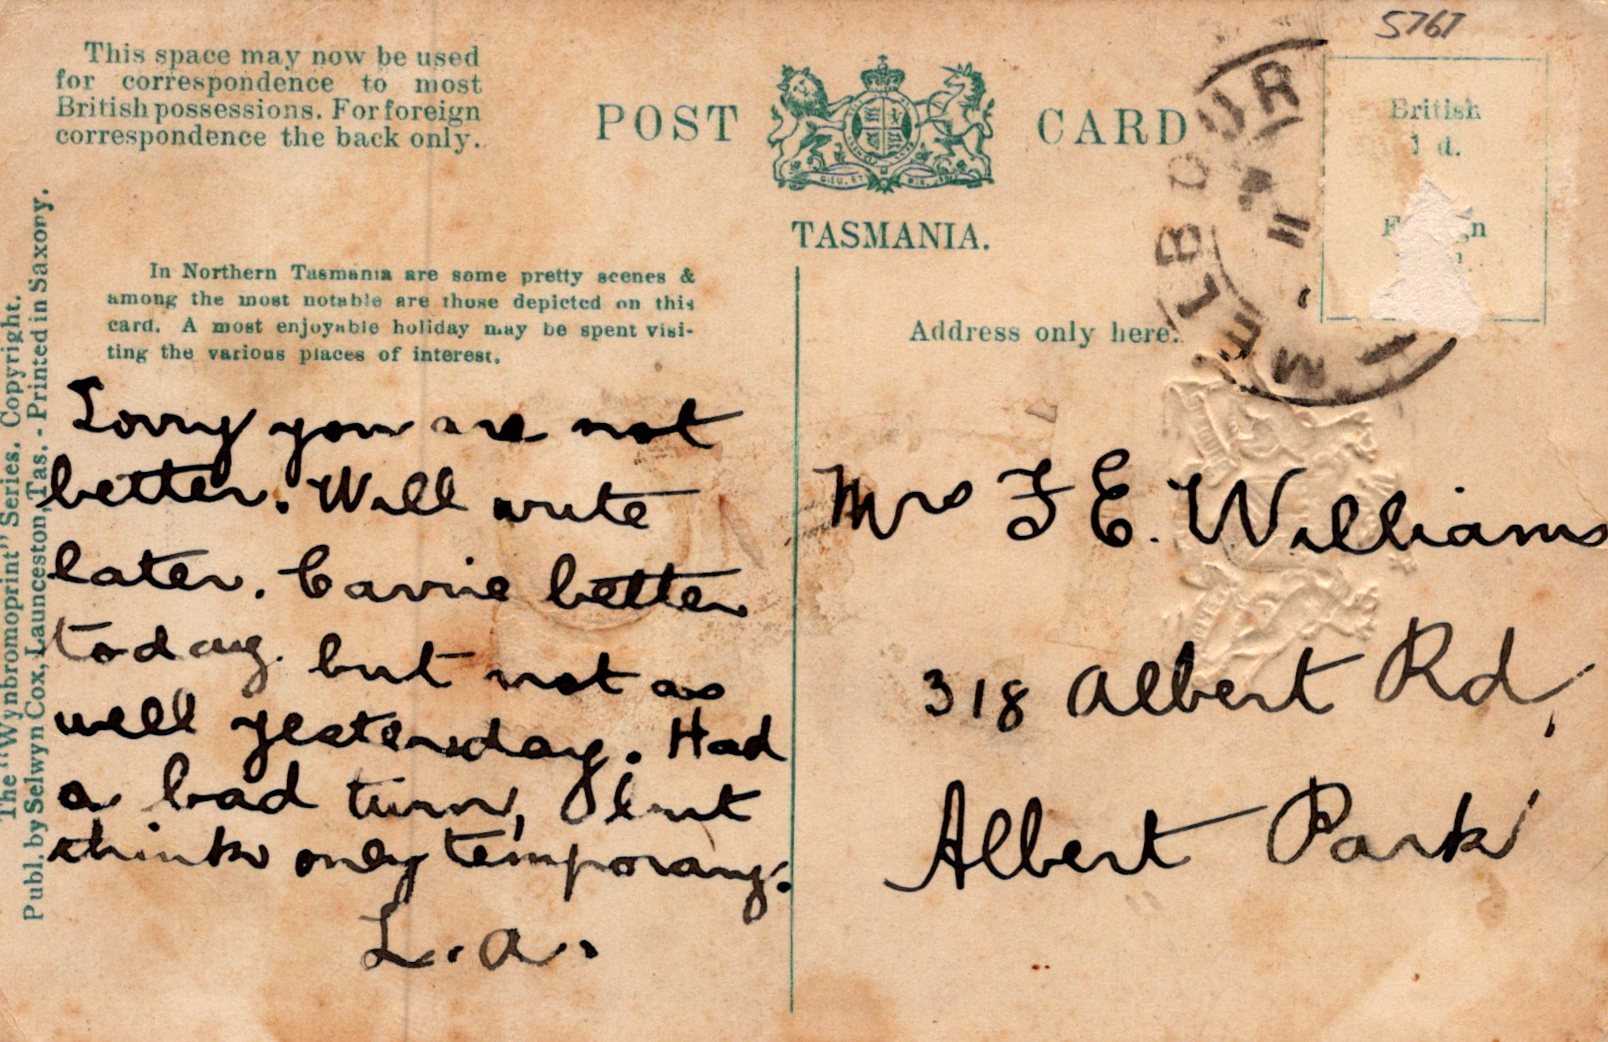 5767
This space may now be used
for correspondence to most
British possessions. For foreign
correspondence the back only.
POST CARD
TASMANIA.
British
1 d.
MELBOUR
11
In Northern Tasmania are some pretty scenes &
among the most notable are those depicted on this
card. A most enjoyable holiday may be spent visi-
ting the various places of interest.
Address only here.
The "Wynbromoprint" Series. Copyright.
Publ. by Selwyn Cox, Launceston, Tas. - Printed in Saxony.
Sorry you are not
better. Will write
later. Carrie better
today. but not as
well yesterday. Had
a bad turn, but
think only temporary.
L. A.
Mrs F E. Williams
318 Albert Rd,
Albert Park